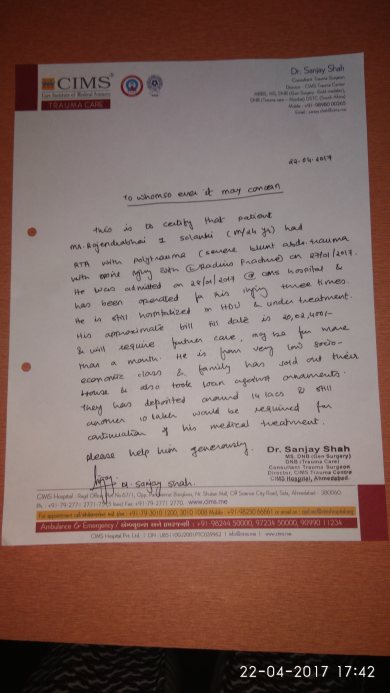 CIMS®
Care Institute of Medical Sciences
TRAUMA CARE
Dr. Sanjay Shah
Consultant Trauma Surgeon
Director : CIMS Trauma Center
MBBS, MS, DNB (Gen Surgery - Gold medalist),
DNB (Trauma care - Mumbai) DSTC (South Africa)
Mobile : +91-98980 00265
22.04.2017
To whomso ever it may concern
This is to certify that patient
Mr. Rajendrabhai I Solanki (M/24 yr) had
RTA with polytrauma (severe blunt abdo. trauma
with injury with Radius fracture) on 27/01/2017.
He was admitted on 28/01/2017 @ cims hospital &
has been operated for his injury three times.
He is still hospitalized in HDU & under treatment.
His approximate bill till date is 20,02,400/-
& will require further care, may be for more
than a month. He is from very low socio-
economic class & family has sold out their
House & also took loan against ornaments.
They has deposited around 14 lacs & still
another 10 lakh would be required for
continuation of his medical treatment.
please help him generously.
Dr. Sanjay Shah
MS, DNB (Gen Surgery)
DNB (Trauma Care)
Consultant Trauma Surgeon
Director, CIMS Trauma Centre
CIMS Hospital, Ahmedabad.
Dr. Sanjay Shah.
CIMS Hospital : Regd Office: Plot No.67/1, Opp. Panchamrut Bunglows, Nr. Shukan Mall, Off Science City Road, Sola, Ahmedabad - 380060.
Ph. : +91-79-2771 2771-75 Fax: +91-79-2771 2770. www.cims.me
For appointment call +91-79-3010 1200, 3010 1008 Mobile : +91-98250 66661 or email on
Ambulance & Emergency / એમ્બ્યુલન્સ અને ઇમરજન્સી : +91-98244 50000, 97234 50000, 90990 11234
CIMS Hospital Pvt. Ltd. | CIN : U85110GJ2001PTC039962 | info@cims.me | www.cims.me
22-04-2017 17:42